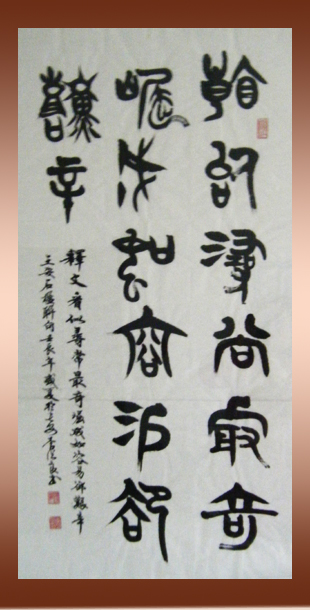 看似尋常最奇
崛成如容易卻
艱辛
釋文看似尋常最奇崛成如容易卻艱辛
王安石詩句壬辰年盛夏於